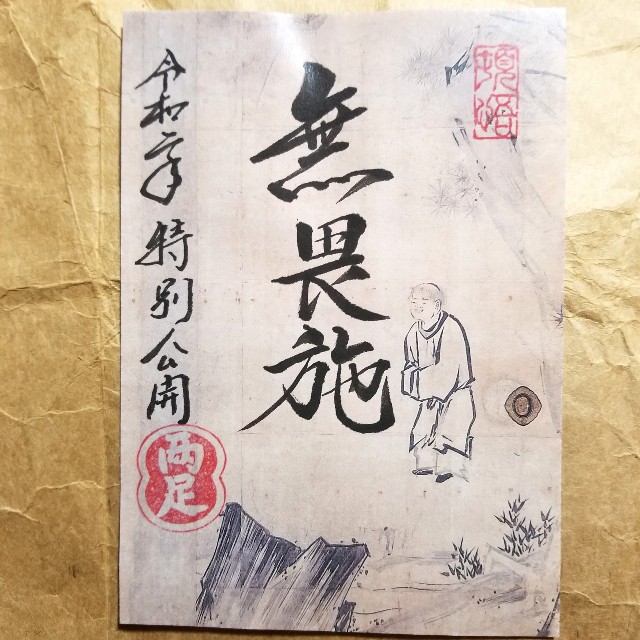 無畏施
令和二年 特別公開
両足
頓悟